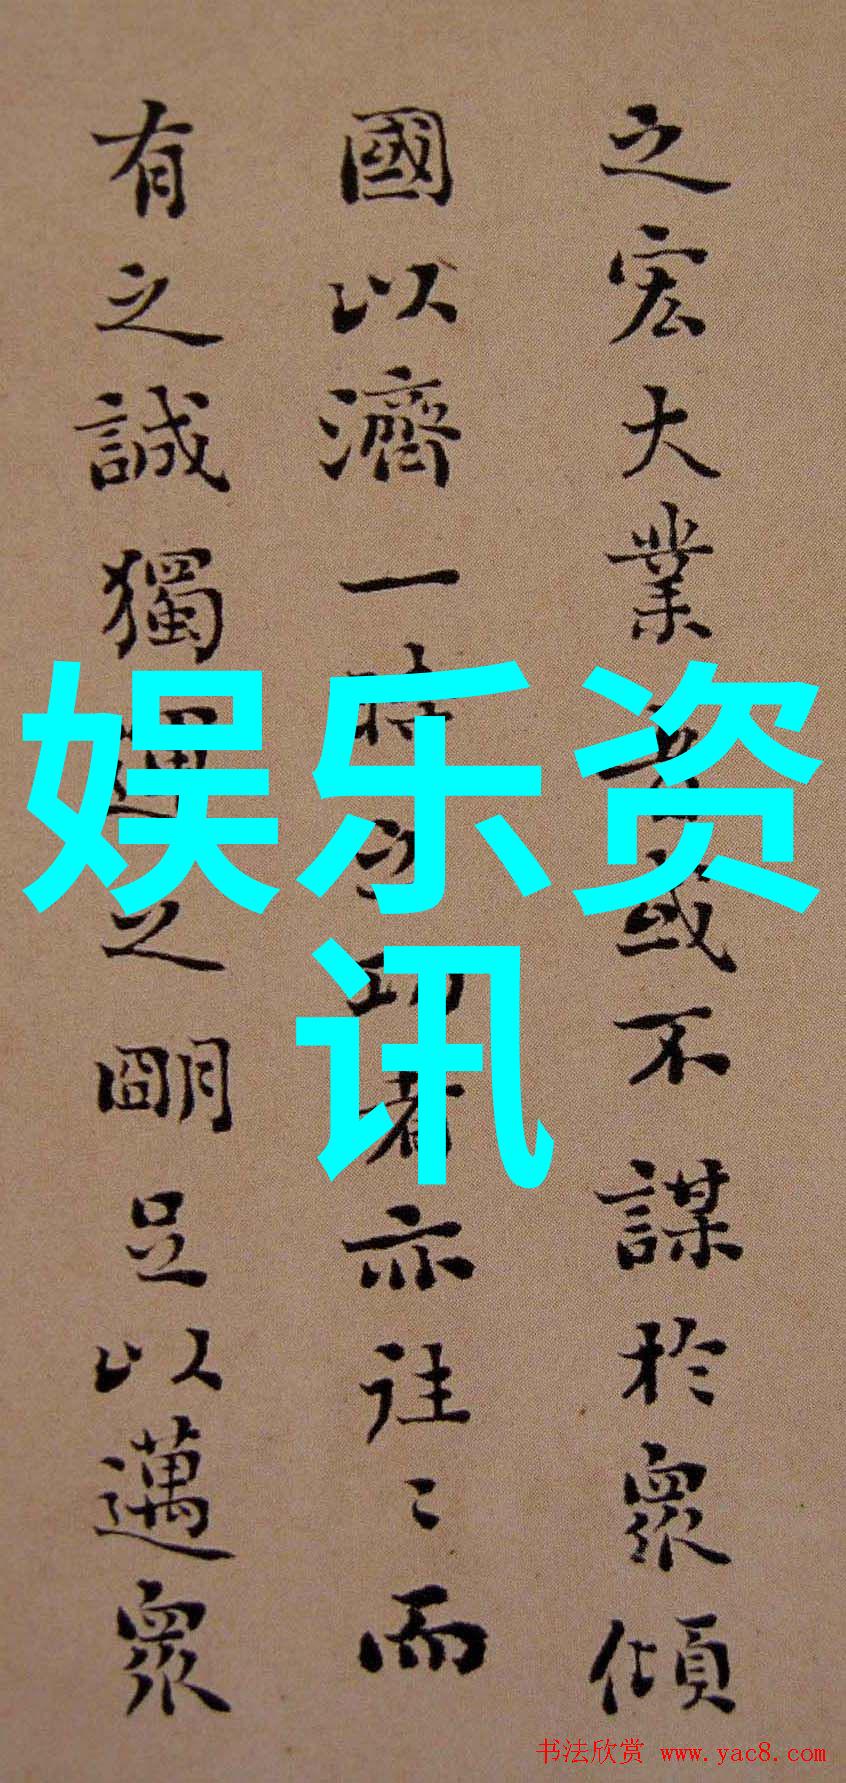 之宏大業者或不謀於衆傾
國以濟一時之功者亦往々而
有之誠獨運之明足以邁衆
娱乐资
讯
书法欣赏 www.yac8.com